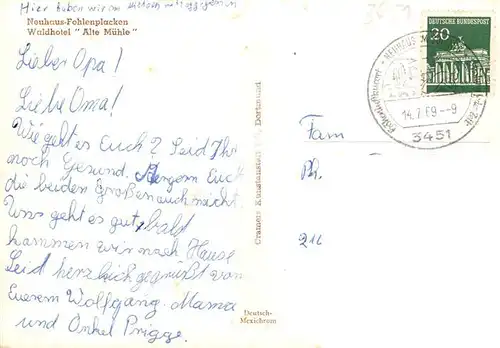 Hier haben wir am
Neuhaus-Fohlenplacken
Waldhotel "Alte Mühle"
Lieber Opa!
Liebe Oma!
Wie geht es Euch? Seid Ihr
noch Gesund. Aergern Euch
die beiden Großen auch nicht.
Uns geht es gut, bald
kommen wir nach Hause
Seid herzlich gegrüßt von
Eurem Wolfgang. Mama
und Onkel Prigge.
Cramers Kunstanstalt KG, Dortmund
Deutsch-
Mexichrom
DEUTSCHE BUNDESPOST
20
NEUHAUS
14.7.69--9
3451
Fam